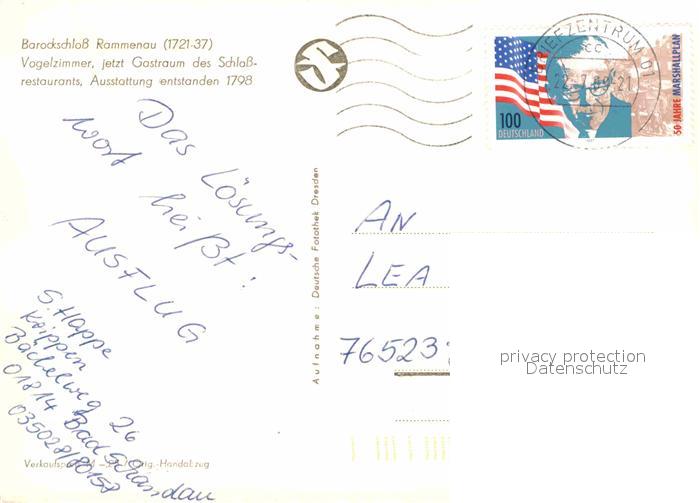 Barockschloß Rammenau (1721-37)
Vogelzimmer, jetzt Gastraum des Schloß-
restaurants, Ausstattung entstanden 1798
Das Lösungs-
wort heißt:
AUSFLUG
S. Happe
Krippen
Bächelweg 26
01814 Bad Schandau
035028/80158
Verkaufspreis
Orig.-Handabzug
Aufnahme: Deutsche Fotothek Dresden
100
DEUTSCHLAND
50 JAHRE MARSHALLPLAN
EZENTRUM 01
cc
AN
LEA
76523
privacy protection
Datenschutz